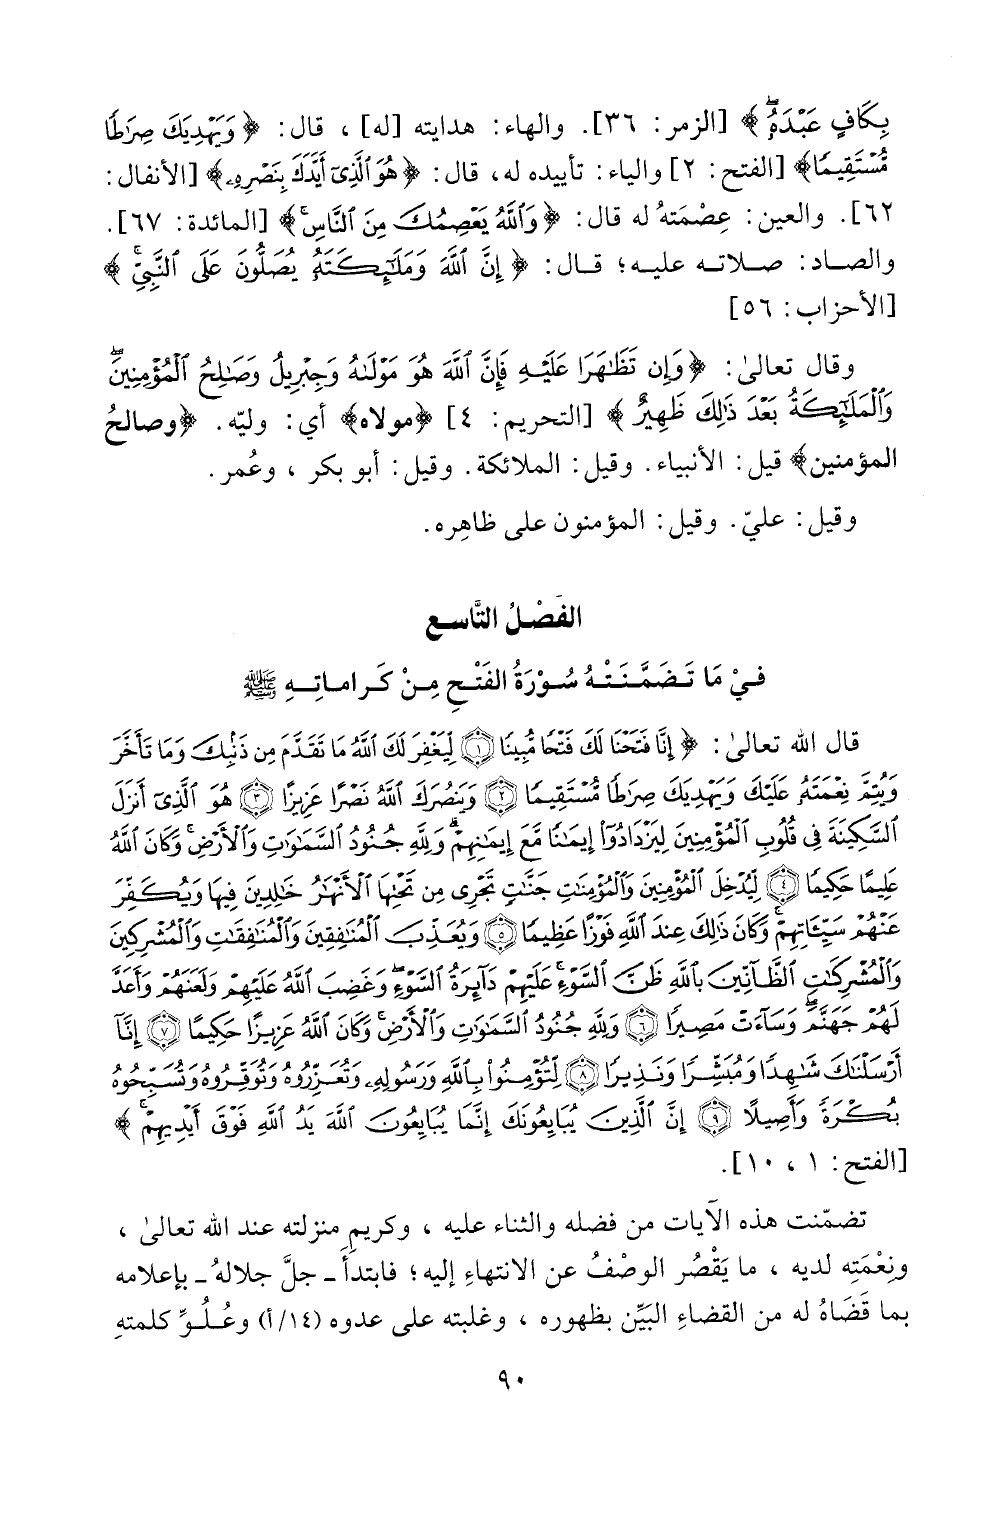 بِكَافٍ عَبْدَهُۥ ﴾ [الزمر: ٣٦]. والهاء: هدايته [له] ، قال: ﴿ وَيَهْدِيَكَ صِرَٰطًا
مُّسْتَقِيمًا﴾ [الفتح: ٢] والياء: تأييده له، قال: ﴿ هُوَ ٱلَّذِىٓ أَيَّدَكَ بِنَصْرِهِۦ ﴾ [الأنفال:
٦٢]. والعين: عِصْمَتهُ له قال: ﴿ وَٱللَّهُ يَعْصِمُكَ مِنَ ٱلنَّاسِ ۚ ﴾ [المائدة: ٦٧].
والصاد: صلاته عليه؛ قال: ﴿ إِنَّ ٱللَّهَ وَمَلَٰٓئِكَتَهُۥ يُصَلُّونَ عَلَى ٱلنَّبِىِّ ۚ ﴾
[الأحزاب: ٥٦]
وقال تعالىٰ: ﴿ وَإِن تَظَٰهَرَا عَلَيْهِ فَإِنَّ ٱللَّهَ هُوَ مَوْلَىٰهُ وَجِبْرِيلُ وَصَٰلِحُ ٱلْمُؤْمِنِينَ ۖ
وَٱلْمَلَٰٓئِكَةُ بَعْدَ ذَٰلِكَ ظَهِيرٌ ﴾ [التحريم: ٤] ﴿مولاه﴾ أي: وليّه. ﴿وصالحُ
المؤمنين﴾ قيل: الأنبياء. وقيل: الملائكة. وقيل: أبو بكر ، وعُمر.
وقيل: عليّ. وقيل: المؤمنون على ظاهِره.
الفَصْلُ التَّاسع
فيْ مَا تَضَمَّنَتْهُ سُوْرَةُ الفَتْحِ مِنْ كَراماتِهِ ﷺ
قال الله تعالىٰ: ﴿ إِنَّا فَتَحْنَا لَكَ فَتْحًا مُّبِينًا ۝١ لِّيَغْفِرَ لَكَ ٱللَّهُ مَا تَقَدَّمَ مِن ذَنۢبِكَ وَمَا تَأَخَّرَ
وَيُتِمَّ نِعْمَتَهُۥ عَلَيْكَ وَيَهْدِيَكَ صِرَٰطًا مُّسْتَقِيمًا ۝٢ وَيَنصُرَكَ ٱللَّهُ نَصْرًا عَزِيزًا ۝٣ هُوَ ٱلَّذِىٓ أَنزَلَ
ٱلسَّكِينَةَ فِى قُلُوبِ ٱلْمُؤْمِنِينَ لِيَزْدَادُوٓا۟ إِيمَٰنًا مَّعَ إِيمَٰنِهِمْ ۗ وَلِلَّهِ جُنُودُ ٱلسَّمَٰوَٰتِ وَٱلْأَرْضِ ۚ وَكَانَ ٱللَّهُ
عَلِيمًا حَكِيمًا ۝٤ لِّيُدْخِلَ ٱلْمُؤْمِنِينَ وَٱلْمُؤْمِنَٰتِ جَنَّٰتٍ تَجْرِى مِن تَحْتِهَا ٱلْأَنْهَٰرُ خَٰلِدِينَ فِيهَا وَيُكَفِّرَ
عَنْهُمْ سَيِّـَٔاتِهِمْ ۚ وَكَانَ ذَٰلِكَ عِندَ ٱللَّهِ فَوْزًا عَظِيمًا ۝٥ وَيُعَذِّبَ ٱلْمُنَٰفِقِينَ وَٱلْمُنَٰفِقَٰتِ وَٱلْمُشْرِكِينَ
وَٱلْمُشْرِكَٰتِ ٱلظَّآنِّينَ بِٱللَّهِ ظَنَّ ٱلسَّوْءِ ۚ عَلَيْهِمْ دَآئِرَةُ ٱلسَّوْءِ ۖ وَغَضِبَ ٱللَّهُ عَلَيْهِمْ وَلَعَنَهُمْ وَأَعَدَّ
لَهُمْ جَهَنَّمَ ۖ وَسَآءَتْ مَصِيرًا ۝٦ وَلِلَّهِ جُنُودُ ٱلسَّمَٰوَٰتِ وَٱلْأَرْضِ ۚ وَكَانَ ٱللَّهُ عَزِيزًا حَكِيمًا ۝٧ إِنَّآ
أَرْسَلْنَٰكَ شَٰهِدًا وَمُبَشِّرًا وَنَذِيرًا ۝٨ لِّتُؤْمِنُوا۟ بِٱللَّهِ وَرَسُولِهِۦ وَتُعَزِّرُوهُ وَتُوَقِّرُوهُ وَتُسَبِّحُوهُ
بُكْرَةً وَأَصِيلًا ۝٩ إِنَّ ٱلَّذِينَ يُبَايِعُونَكَ إِنَّمَا يُبَايِعُونَ ٱللَّهَ يَدُ ٱللَّهِ فَوْقَ أَيْدِيهِمْ ۚ ﴾
[الفتح: ١ ، ١٠].
تضمّنت هذه الآيات من فضله والثناء عليه ، وكريمِ منزلته عند الله تعالىٰ ،
ونِعْمَتِه لديه ، ما يَقْصُر الوصْفُ عن الانتهاءِ إليه؛ فابتدأ ـ جلَّ جلالهُ ـ بإعلامه
بما قَضَاهُ له من القضاءِ البَيِّن بظهوره ، وغلبته على عدوه (١٤/أ) وعُلُوِّ كلمتهِ
٩٠